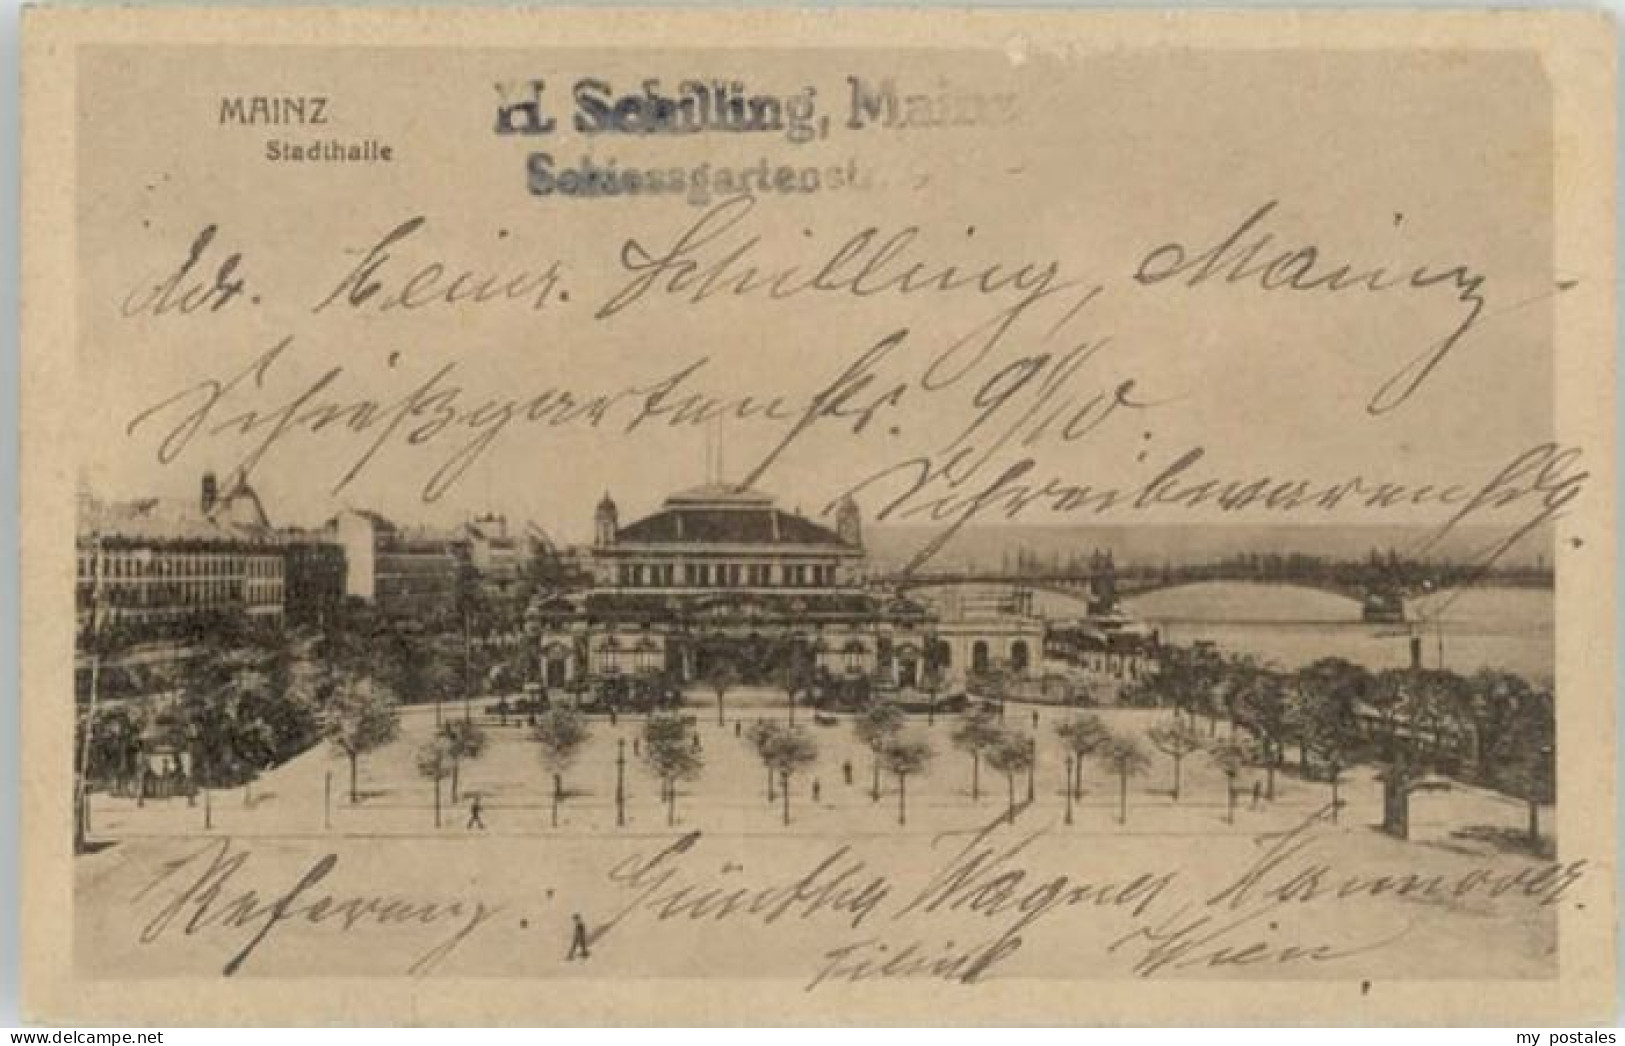 MAINZ
Stadthalle
H. Schilling, Mainz
Schiessgartenstr. 9
Adr. Heinr. Schilling, Mainz
Schießgartenstr. 9/10.
Schreibwarenhdg.
Referenz: Günther Wagner, Hannover.
Filiale Wien
my postales